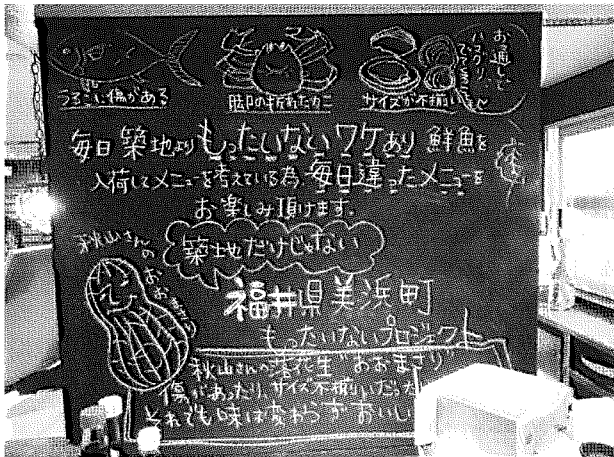 うろこに傷がある
脚の折れたカニ
サイズが不揃い
お通しで
ハマグリ
でてきます
毎日築地よりもったいないワケあり鮮魚を
入荷してメニューを考えている為、毎日違ったメニューを
お楽しみ頂けます。
築地だけじゃない
秋山さんの
おおまさり
福井県美浜町
もったいないプロジェクト
秋山さんの落花生"おおまさり"
傷があったり、サイズ不揃いだった
それでも味は変わらずおいし